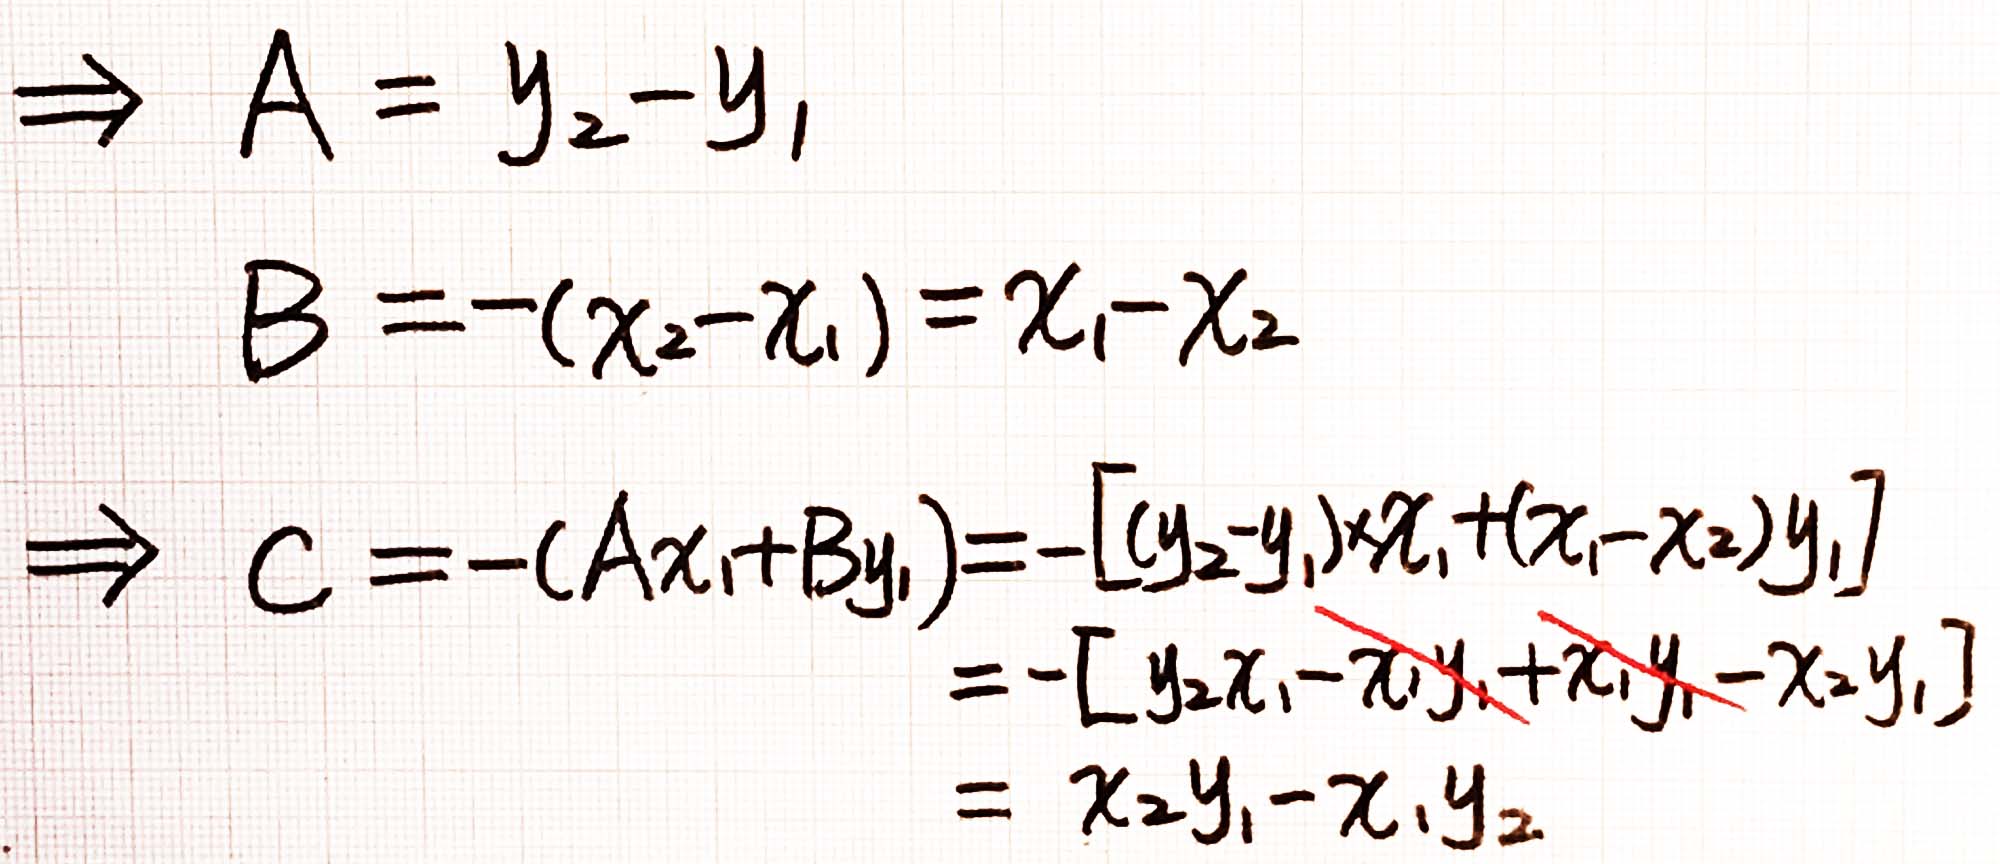 ⇒ A = y₂ - y₁
B = -(x₂ - x₁) = x₁ - x₂
⇒ C = -(Ax₁ + By₁) = -[(y₂ - y₁)×x₁ + (x₁ - x₂)y₁]
= -[y₂x₁ - x₁y₁ + x₁y₁ - x₂y₁]
= x₂y₁ - x₁y₂